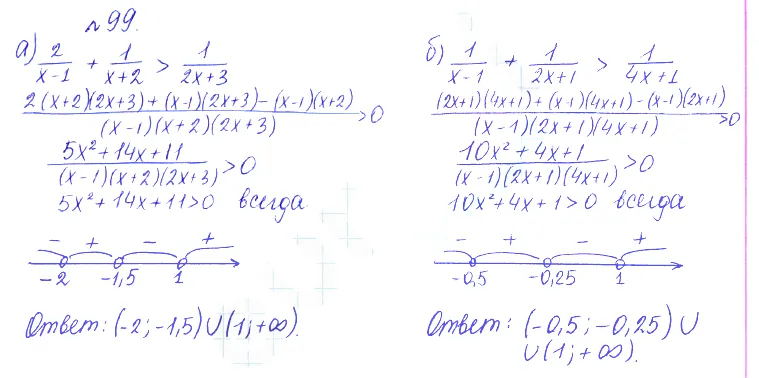 №99.
а) 2/(x-1) + 1/(x+2) > 1/(2x+3)
(2(x+2)(2x+3)+(x-1)(2x+3)-(x-1)(x+2))/((x-1)(x+2)(2x+3)) >0
(5x²+14x+11)/((x-1)(x+2)(2x+3)) >0
5x²+14x+11>0 всегда
- + - +
-2 -1,5 1
Ответ: (-2; -1,5) ∪ (1; +∞).
б) 1/(x-1) + 1/(2x+1) > 1/(4x+1)
((2x+1)(4x+1)+(x-1)(4x+1)-(x-1)(2x+1))/((x-1)(2x+1)(4x+1)) >0
(10x²+4x+1)/((x-1)(2x+1)(4x+1)) >0
10x²+4x+1>0 всегда
- + - +
-0,5 -0,25 1
Ответ: (-0,5; -0,25) ∪
∪ (1; +∞).